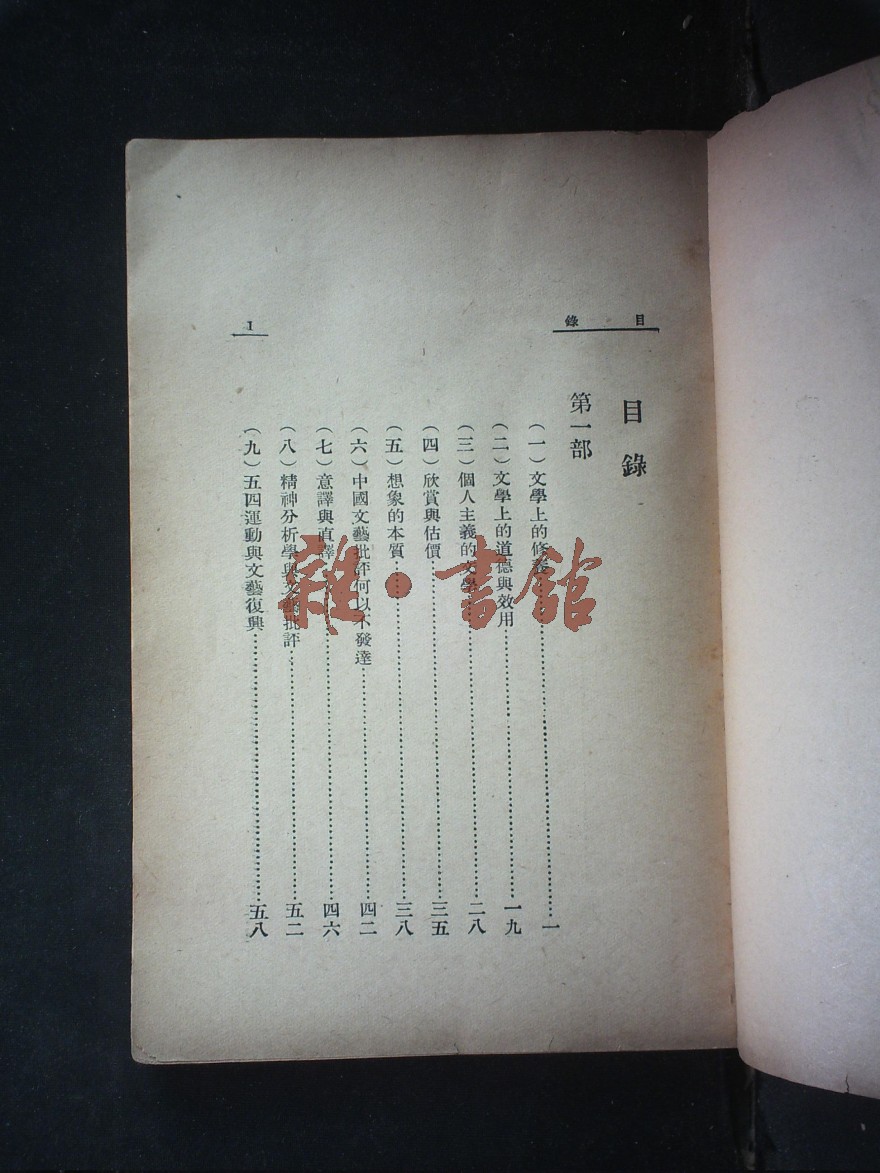 目錄
1
目錄
第一部
(一)文學上的修養……一
(二)文學上的道德與效用……一九
(三)個人主義的文學……二八
(四)欣賞與估價……三五
(五)想象的本質……三八
(六)中國文藝批評何以不發達……四二
(七)意譯與直譯……四六
(八)精神分析學與文藝批評……五二
(九)五四運動與文藝復興……五八
雜·書館